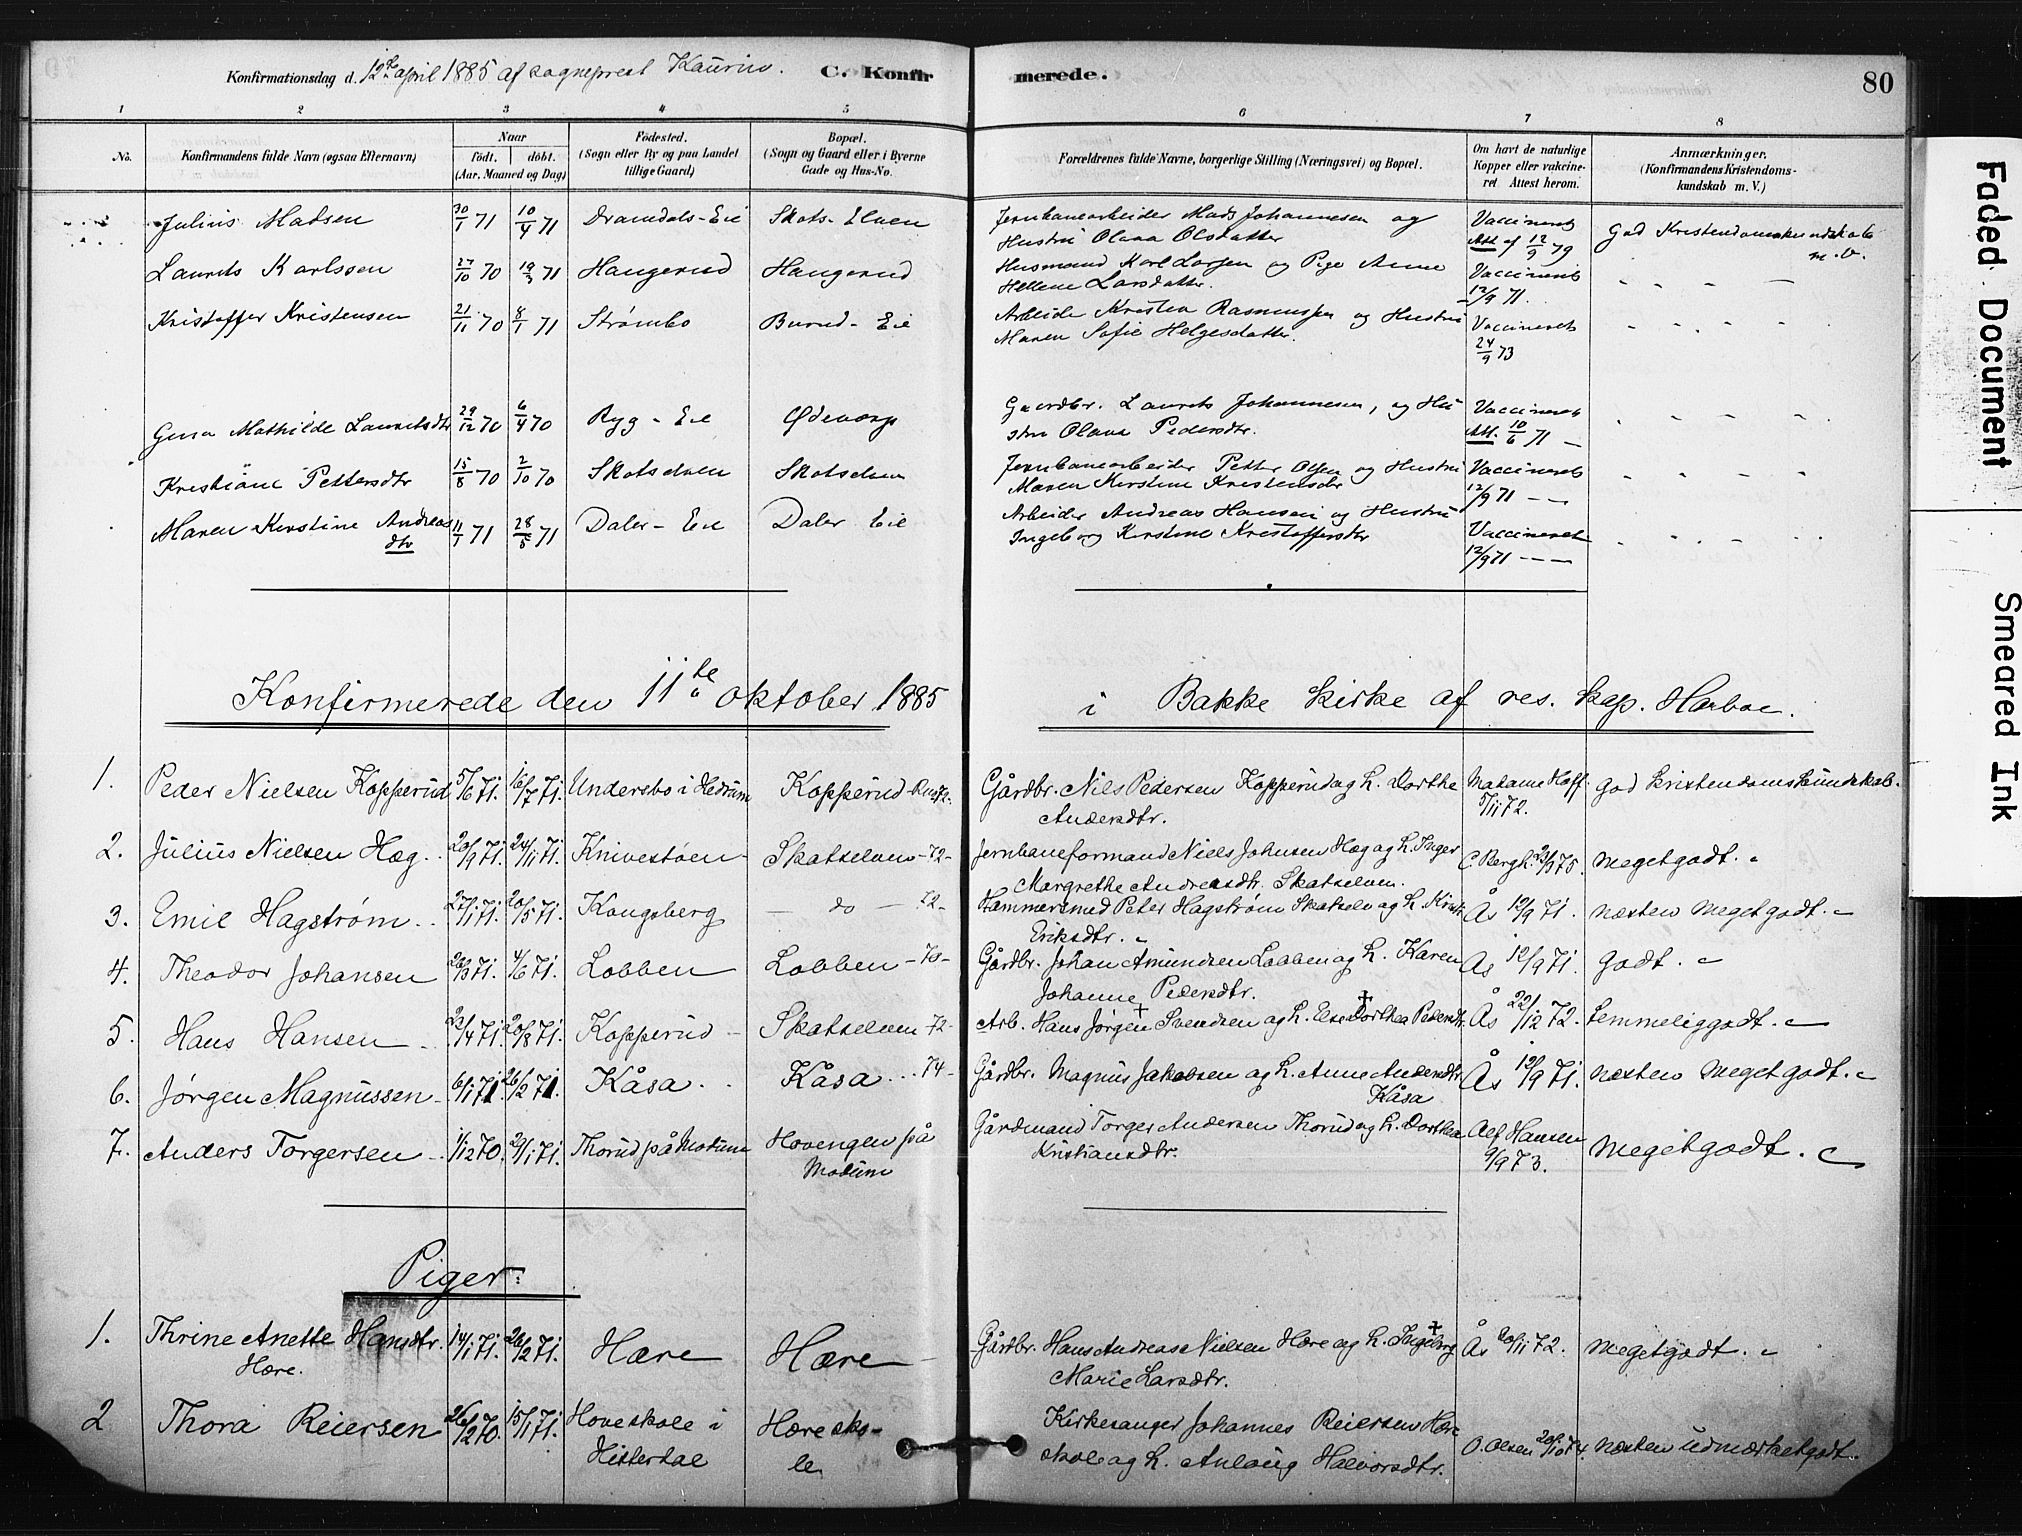 Konfirmationsdag d. 12te april 1885 af sogneprest Kaurin. C. Konfirmerede. 80
1 2 3 4 5 6 7 8
No. Konfirmandens fulde Navn (ogsaa Efternavn) Naar født. døbt. (Aar, Maaned og Dag) Fødested. (Sogn eller By og paa Landet tillige Gaard) Bopæl. (Sogn og Gaard eller i Byerne Gade og Hus-No. Forældrenes fulde Navne, borgerlige Stilling (Næringsvei) og Bopæl. Om havt de naturlige Kopper eller vakcineret. Attest herom. Anmærkninger. (Konfirmandens Kristendomskundskab m. V.)
Julius Madsen 30/1 71 10/4 71 Dramdals-Eie Skots-Elven Jernbanearbeider Mads Johannesen og Vaccineret God Kristendomskundskab
Hustru Olava Olsdatter Att af 12/9 79 m.v.
Laurits Karlssen 27/10 70 19/3 71 Haugerud Haugerud Husmand Karl Larsen og Pige Anne Vaccineret
Hellene Larsdatter. 12/9 71.
Kristoffer Kristensen 21/11 70 8/1 71 Strømbo Burud-Eie Arbeider Kristen Rasmussen og Hustru Vaccineret
Maren Sofie Helgesdatter. 24/9 73
Gina Mathilde Lauritsdtr 29/12 70 6/4 70 Ryg-Eie Ødevarp Gaardbr. Laurits Johannesen, og Hu Vaccineret
stru Olava Pedersdtr. Att. 10/6 71 —
Kristiane Pettersdtr 15/8 70 2/10 70 Skotselven Skotselven Jernbanearbeider Petter Olsen og Hustru Vaccineret
Maren Kirstine Kristensdtr 12/9 71 — —
Maren Kirstine Andreas 11/1 71 28/5 71 Daler-Eie Daler Eie Arbeider Andreas Hansen og Hustru Vaccineret
dtr Ingeborg Kirstine Kristoffersdtr 12/9 71 — — —
Konfirmerede den 11te oktober 1885 i Bakke kirke af res. kap. Harboe.
1. Peder Nielsen Kopperud 5/6 71. 16/7 71. Undersbo i Hedrum Kopperud Gårdbr. Nils Pedersen Kopperud og h. Dorthe Madame Hoff god kristendomskundskab.
Andersdtr. 5/11 72.
2. Julius Nielsen Hæg. 20/9 71. 24/11 71. Knivestøen Skotselven -72- Jernbaneformand Niels Johnsen Hæg og h. Inger C. Bergh. 23/9 75. meget godt. "
Margrethe Andreasdtr. Skotselven.
3. Emil Hagstrøm 27/1 71. 20/5 71. Kongsberg — do — 72- Hammersmed Peter Hagstrøm Skotselv og h. Kristi Ås 12/9 71. næsten meget godt. "
Eriksdtr. "
4. Theodor Johansen 26/3 71. 4/6 71. Lobben Lobben -70- Gårdbr. Johan Amundsen Lobben og h. Karen Ås 12/9 71. godt. "
Johanne Pedersdtr.
5. Hans Hansen 23/4 71. 20/8 71. Kopperud Skotselven 72- Arb. Hans Jørgen Svendsen og h. Else Dorthea Pedersdtr. Ås 22/12 72. temmelig godt. "
6. Jørgen Magnussen 6/1 71. 26/2 71. Kåsa Kåsa -74- Gårdbr. Magnus Jakobsen og h. Anne Andersdtr. Ås 12/9 71. næsten meget godt. "
Kåsa
7. Anders Torgersen 1/12 70. 29/1 71. Thorud på Modum Hovengen på Gårdmand Torger Andersen Thorud og h. Dorthea Alf Hansen meget godt. "
Modum Kristiansdtr. 9/9 73.
Piger:
1. Thrine Anette Hansdtr. 14/1 71. 26/2 71. Hære Hære Gårdbr. Hans Andreas Nielsen Hære og h. Ingeborg Ås 20/11 72. meget godt. "
Hære. Marie Larsdtr.
2 Thora Reiersen 26/12 70. 15/1 71. Hove skole i Hære sko- Kirkesanger Johannes Reiersen Hære O. Olsen 20/10 74. næsten udmærket godt.
Hitterdal le skole og h. Anlaug Halvorsdtr.
Faded Document
Smeared Ink